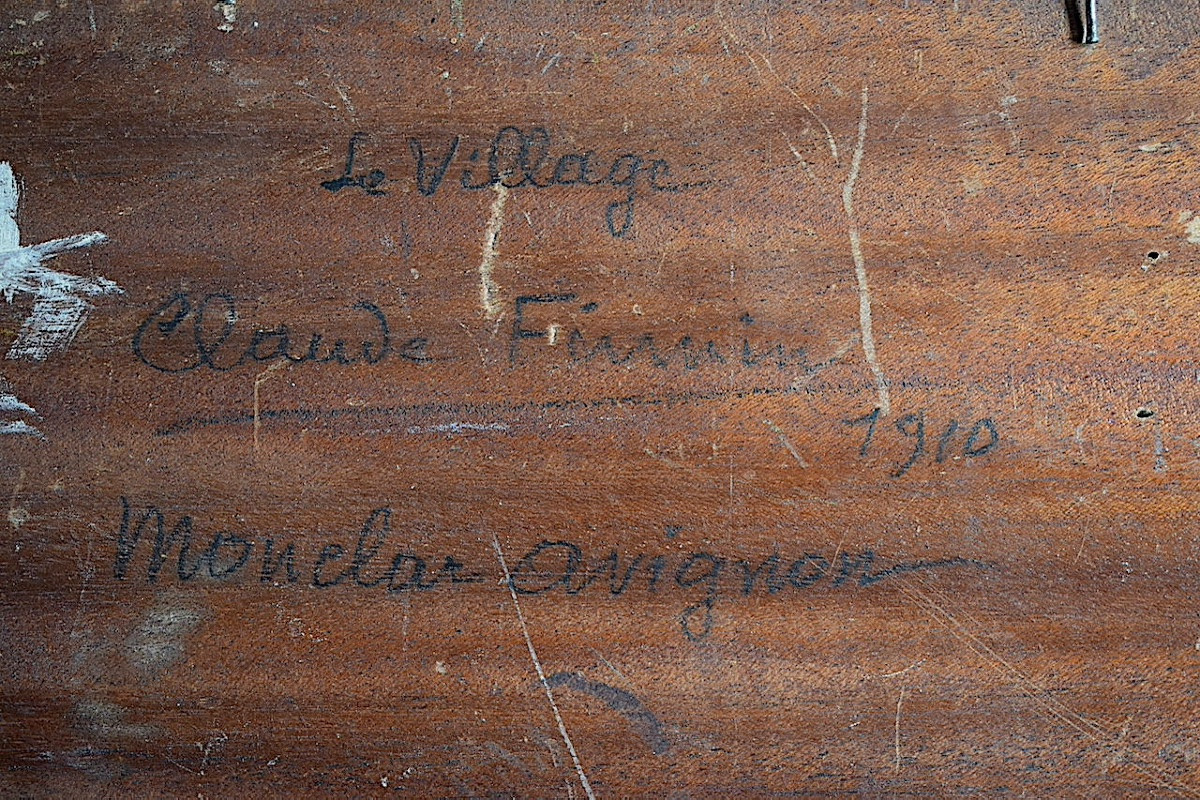 Le Village
Claude Firmin
1910
Monclar Avignon